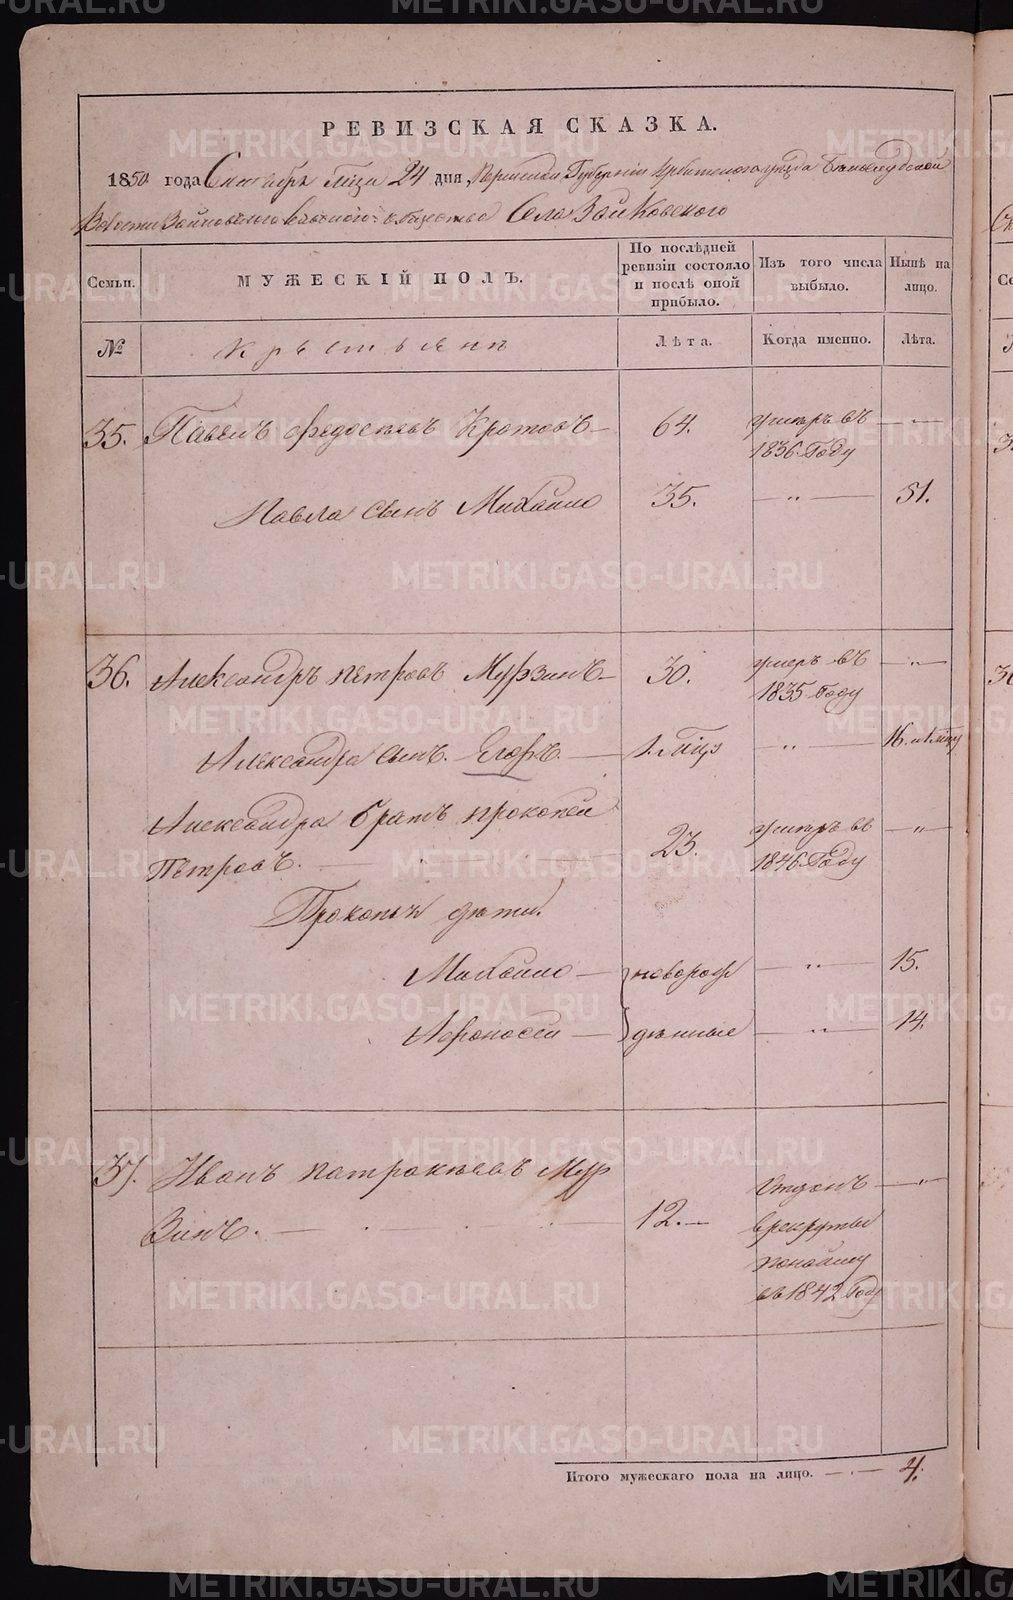 РЕВИЗСКАЯ СКАЗКА.
1850 года Сентября м̃ца 24 дня, Пермской Губернии Ирбитского уезда
Волости Зайковского сельского общества Села Зайковского
Семьи.
МУЖЕСКІЙ ПОЛЪ.
По послѣдней ревизіи состояло и послѣ оной прибыло.
Изъ того числа выбыло.
Нынѣ на лицо.
№
Крестьяне
Лѣта.
Когда именно.
Лѣта.
35. Павелъ Федосеевъ Кротовъ — 64. умеръ въ 1836 Году — „ —
Павла сынъ Михайло 35. — „ — 51.
36. Александръ Петровъ Мурзинъ — 30. умеръ въ 1835 Году — „ —
Александра сынъ Егоръ. — — „ — 16.
Александра братъ Прокопей
Петровъ. — 23. умеръ въ 1846 Году — „ —
Прокопья дети
Михайло — новорож — „ — 15.
Афонасей — денные — „ — 14.
37. Иванъ Патракеевъ Мур
зинъ. — 12. — Отданъ в рекруты по найму въ 1842 Году — „ —
Итого мужескаго пола на лицо. — 4.
METRIKI.GASO-URAL.RU